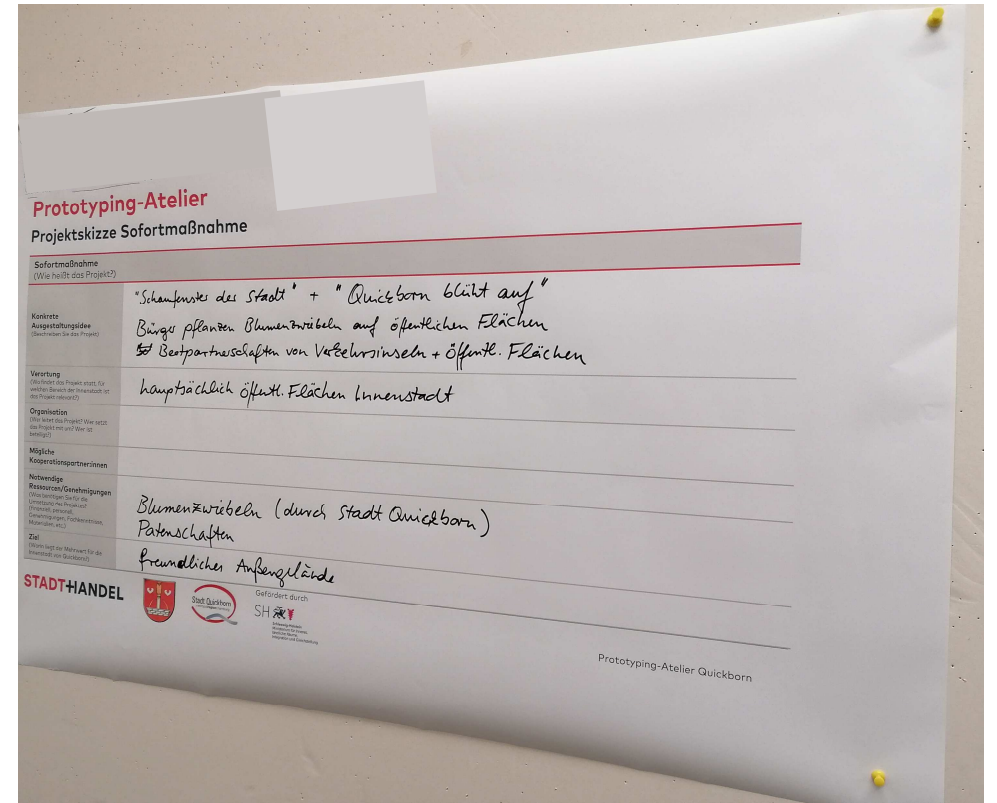 Prototyping-Atelier
Projektskizze Sofortmaßnahme
Sofortmaßnahme
(Wie heißt das Projekt?)
Konkrete
Ausgestaltungsidee
(Beschreiben Sie das Projekt)
"Schaufenster der Stadt" + "Quickborn blüht auf"
Bürger pflanzen Blumenzwiebeln auf öffentlichen Flächen
Beetpartnerschaften von Verkehrsinseln + öffentl. Flächen
Verortung
(Wo findet das Projekt statt, für
welchen Bereich der Innenstadt ist
das Projekt relevant?)
hauptsächlich öffentl. Flächen Innenstadt
Organisation
(Wer leitet das Projekt? Wer setzt
das Projekt mit um? Wer ist
beteiligt?)
Mögliche
Kooperationspartner:innen
Notwendige
Ressourcen/Genehmigungen
(Was benötigen Sie für die
Umsetzung des Projektes?
(finanziell, personell,
Genehmigungen, Fachkenntnisse,
Materialien, etc.)
Blumenzwiebeln (durch Stadt Quickborn)
Patenschaften
Ziel
(Worin liegt der Mehrwert für die
Innenstadt von Quickborn?)
freundliches Außengelände
STADT+HANDEL
Stadt Quickborn
Gefördert durch
SH
Schleswig-Holstein
Ministerium für Inneres,
Prototyping-Atelier Quickborn